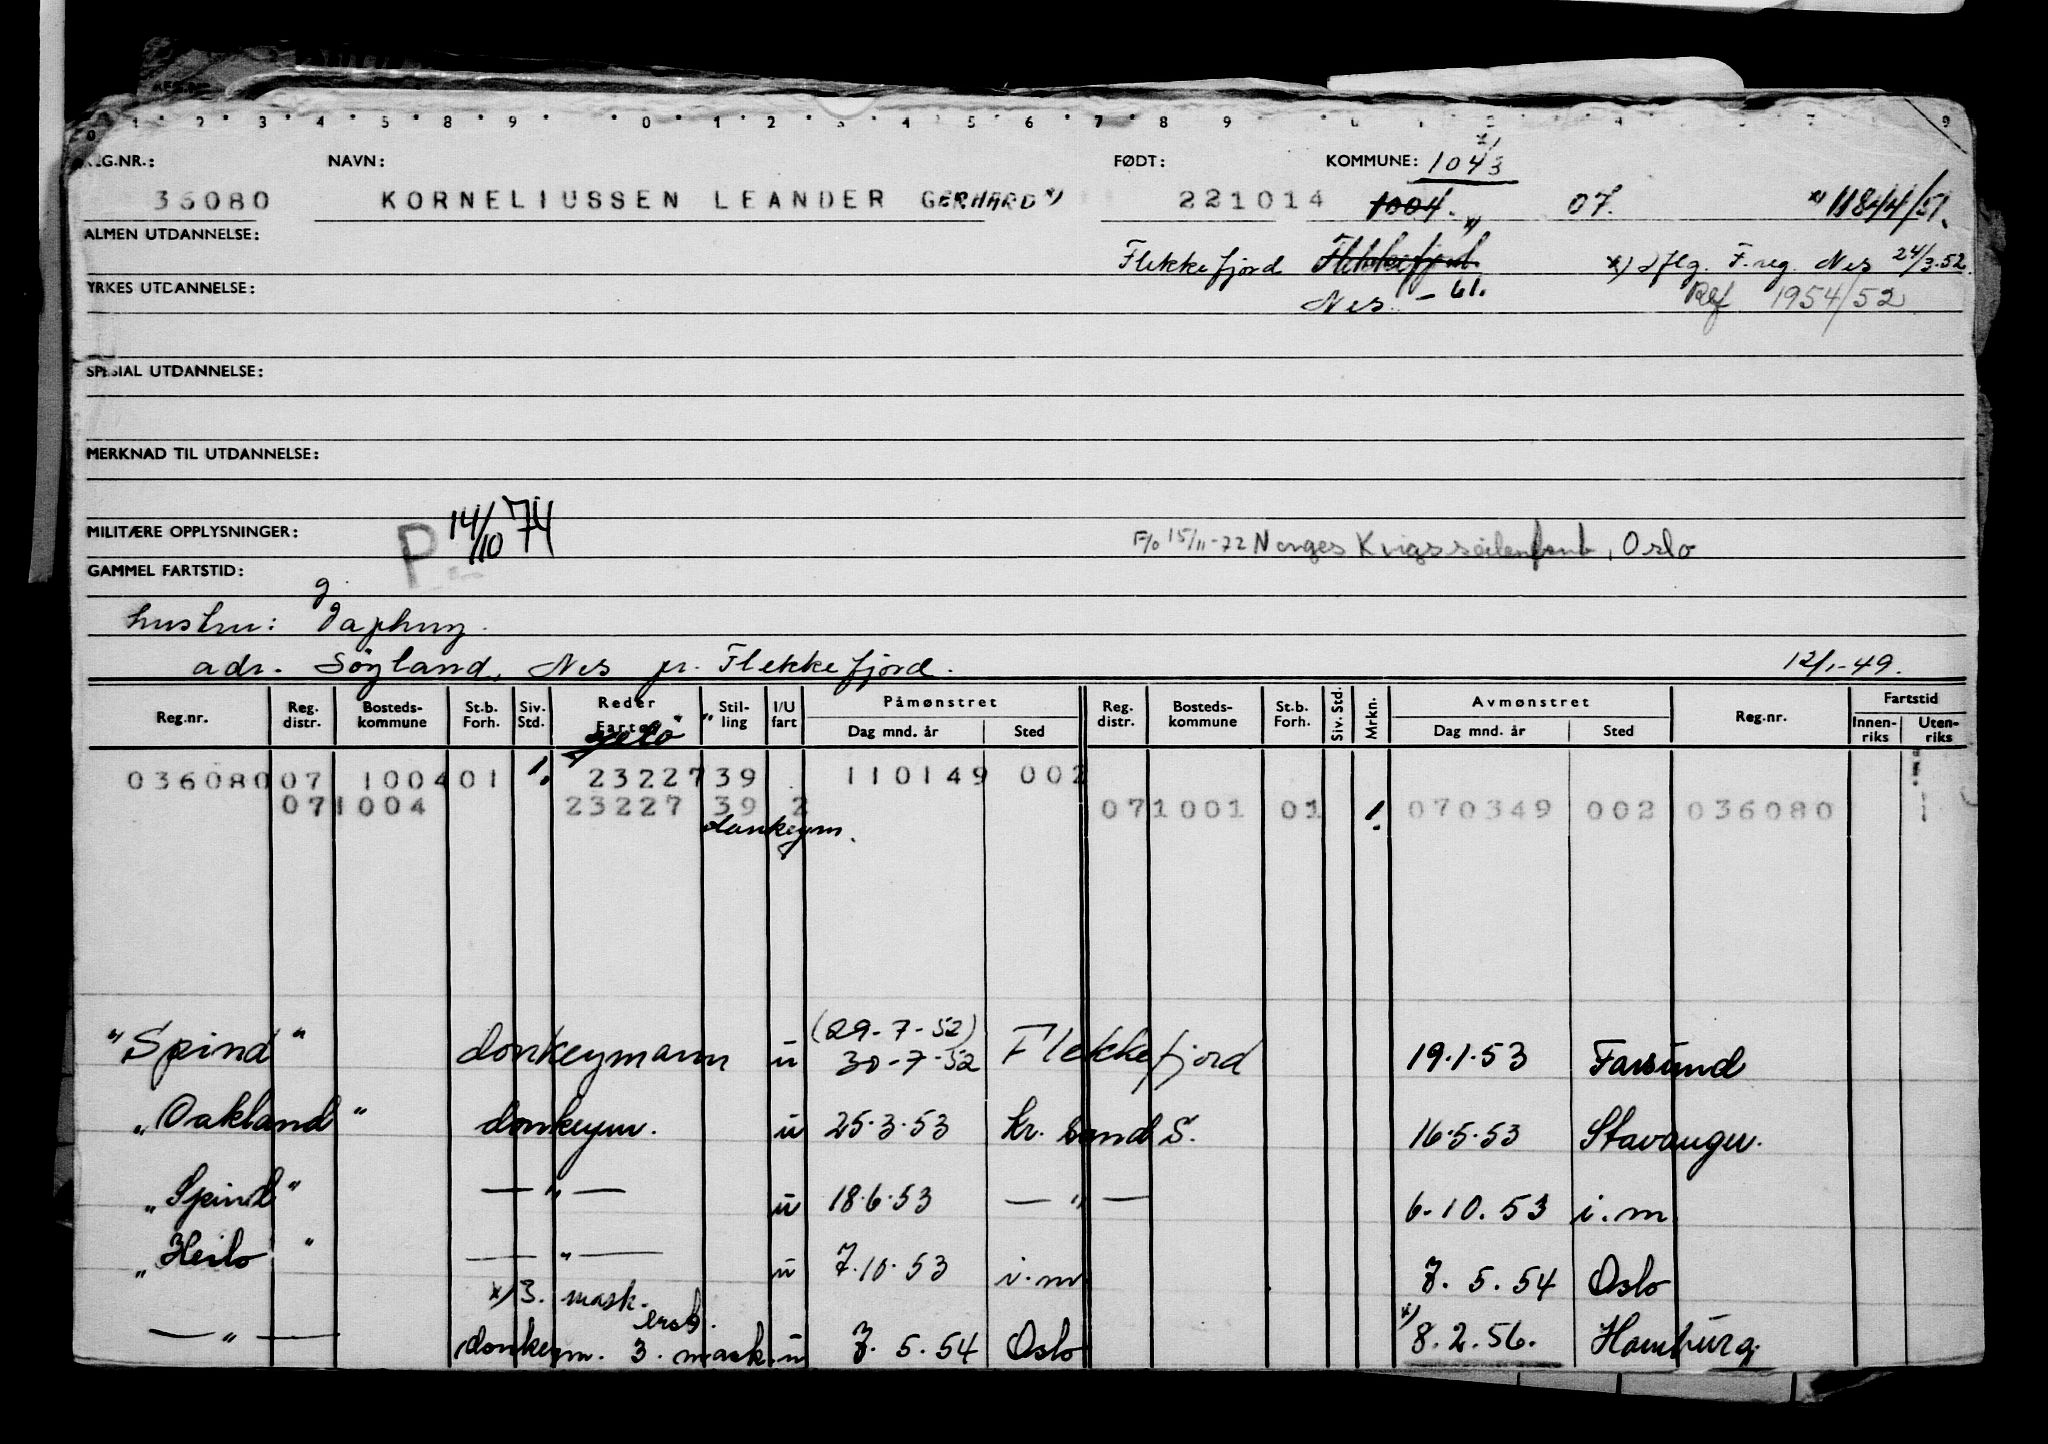 REG.NR.: NAVN: FØDT: KOMMUNE: 1043
36080 KORNELIUSSEN LEANDER GERHARD x) 221014 1004. x) 07. x) 11844/51.
ALMEN UTDANNELSE: Flekkefjord Flekkefjord x) Iflg. F.reg. Nes 24/3.52.
YRKES UTDANNELSE: Nes - 61. Ref 1954/52
SPESIAL UTDANNELSE:
MERKNAD TIL UTDANNELSE:
MILITÆRE OPPLYSNINGER: P. 14/10 74 F/o 15/11-72 Norges Krigsseilerforb, Oslo
GAMMEL FARTSTID:
g.
hustru:
adr. Söyland, Nes pr. Flekkefjord. 12/1-49.
Reg.nr. Reg. distr. Bosteds-kommune St.b. Forh. Siv. Std. Reder Fartøy Stil-ling I/U fart Påmønstret Dag mnd. år Sted Reg. distr. Bosteds-kommune St.b. Forh. Siv. Std. Mrkn. Avmønstret Dag mnd. år Sted Reg.nr. Fartstid Innen-riks Uten-riks
036080 07 1004 01 1. 23227 39 110149 002
07 1004 23227 39 2 07 1001 01 1. 070349 002 036080
donkeym.
(29-7-52)
"Spind" donkeymann u 30-7-52 Flekkefjord 19.1.53 Farsund
"Oakland" donkeym. u 25.3.53 Kr. sand S. 16.5.53 Stavanger.
"Spind" — " — u 18.6.53 — " — 6.10.53 i.m
"Heilo" — " — u 7.10.53 i.m 7.5.54 Oslo
x) 3. mask.
— " — donkeym. 3. mask. u 7.5.54 Oslo x) 8.2.56. Hamburg.